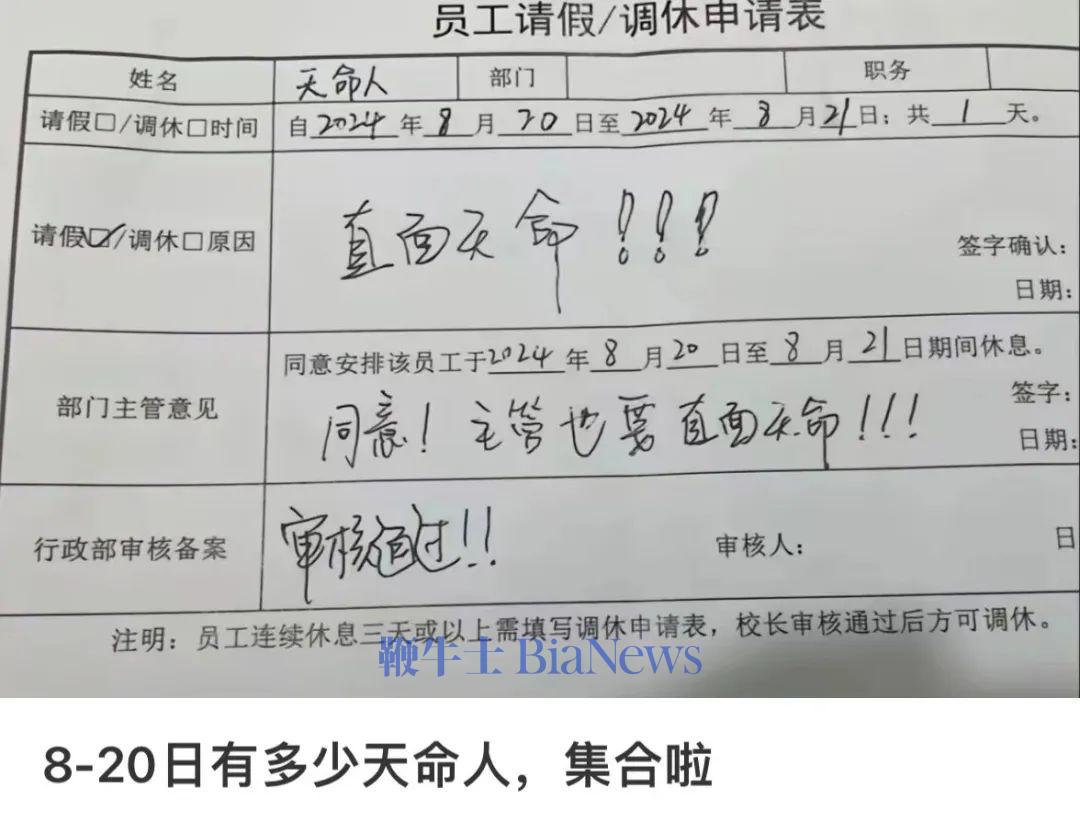 员工请假/调休申请表
姓名 天命人 部门 职务
请假□/调休□时间 自2024年8月20日至2024年8月21日；共1天。
请假☑/调休□原因 直面天命！！！
签字确认：
日期：
同意安排该员工于2024年8月20日至8月21日期间休息。
部门主管意见 同意！主管也要直面天命！！！
签字：
日期：
行政部审核备案 审核通过！！ 审核人： 日
注明：员工连续休息三天或以上需填写调休申请表，校长审核通过后方可调休。
鞭牛士 BiaNews
8-20日有多少天命人，集合啦